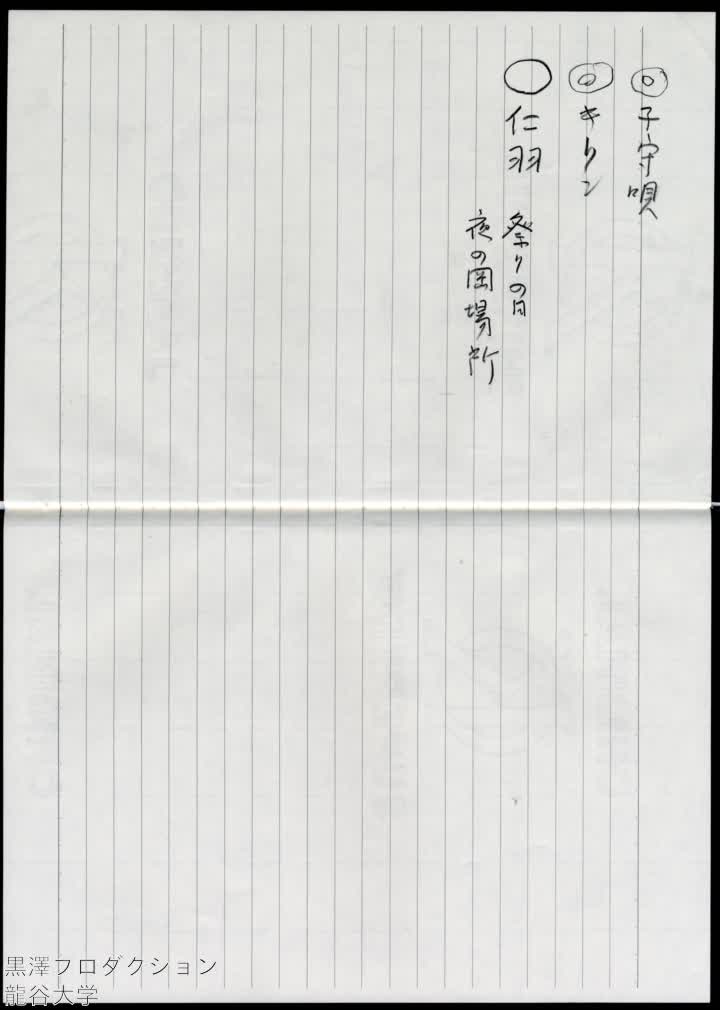 ◎子守唄
◎きりん
○仁羽
祭りの日
夜の岡場所
黒澤プロダクション
龍谷大学